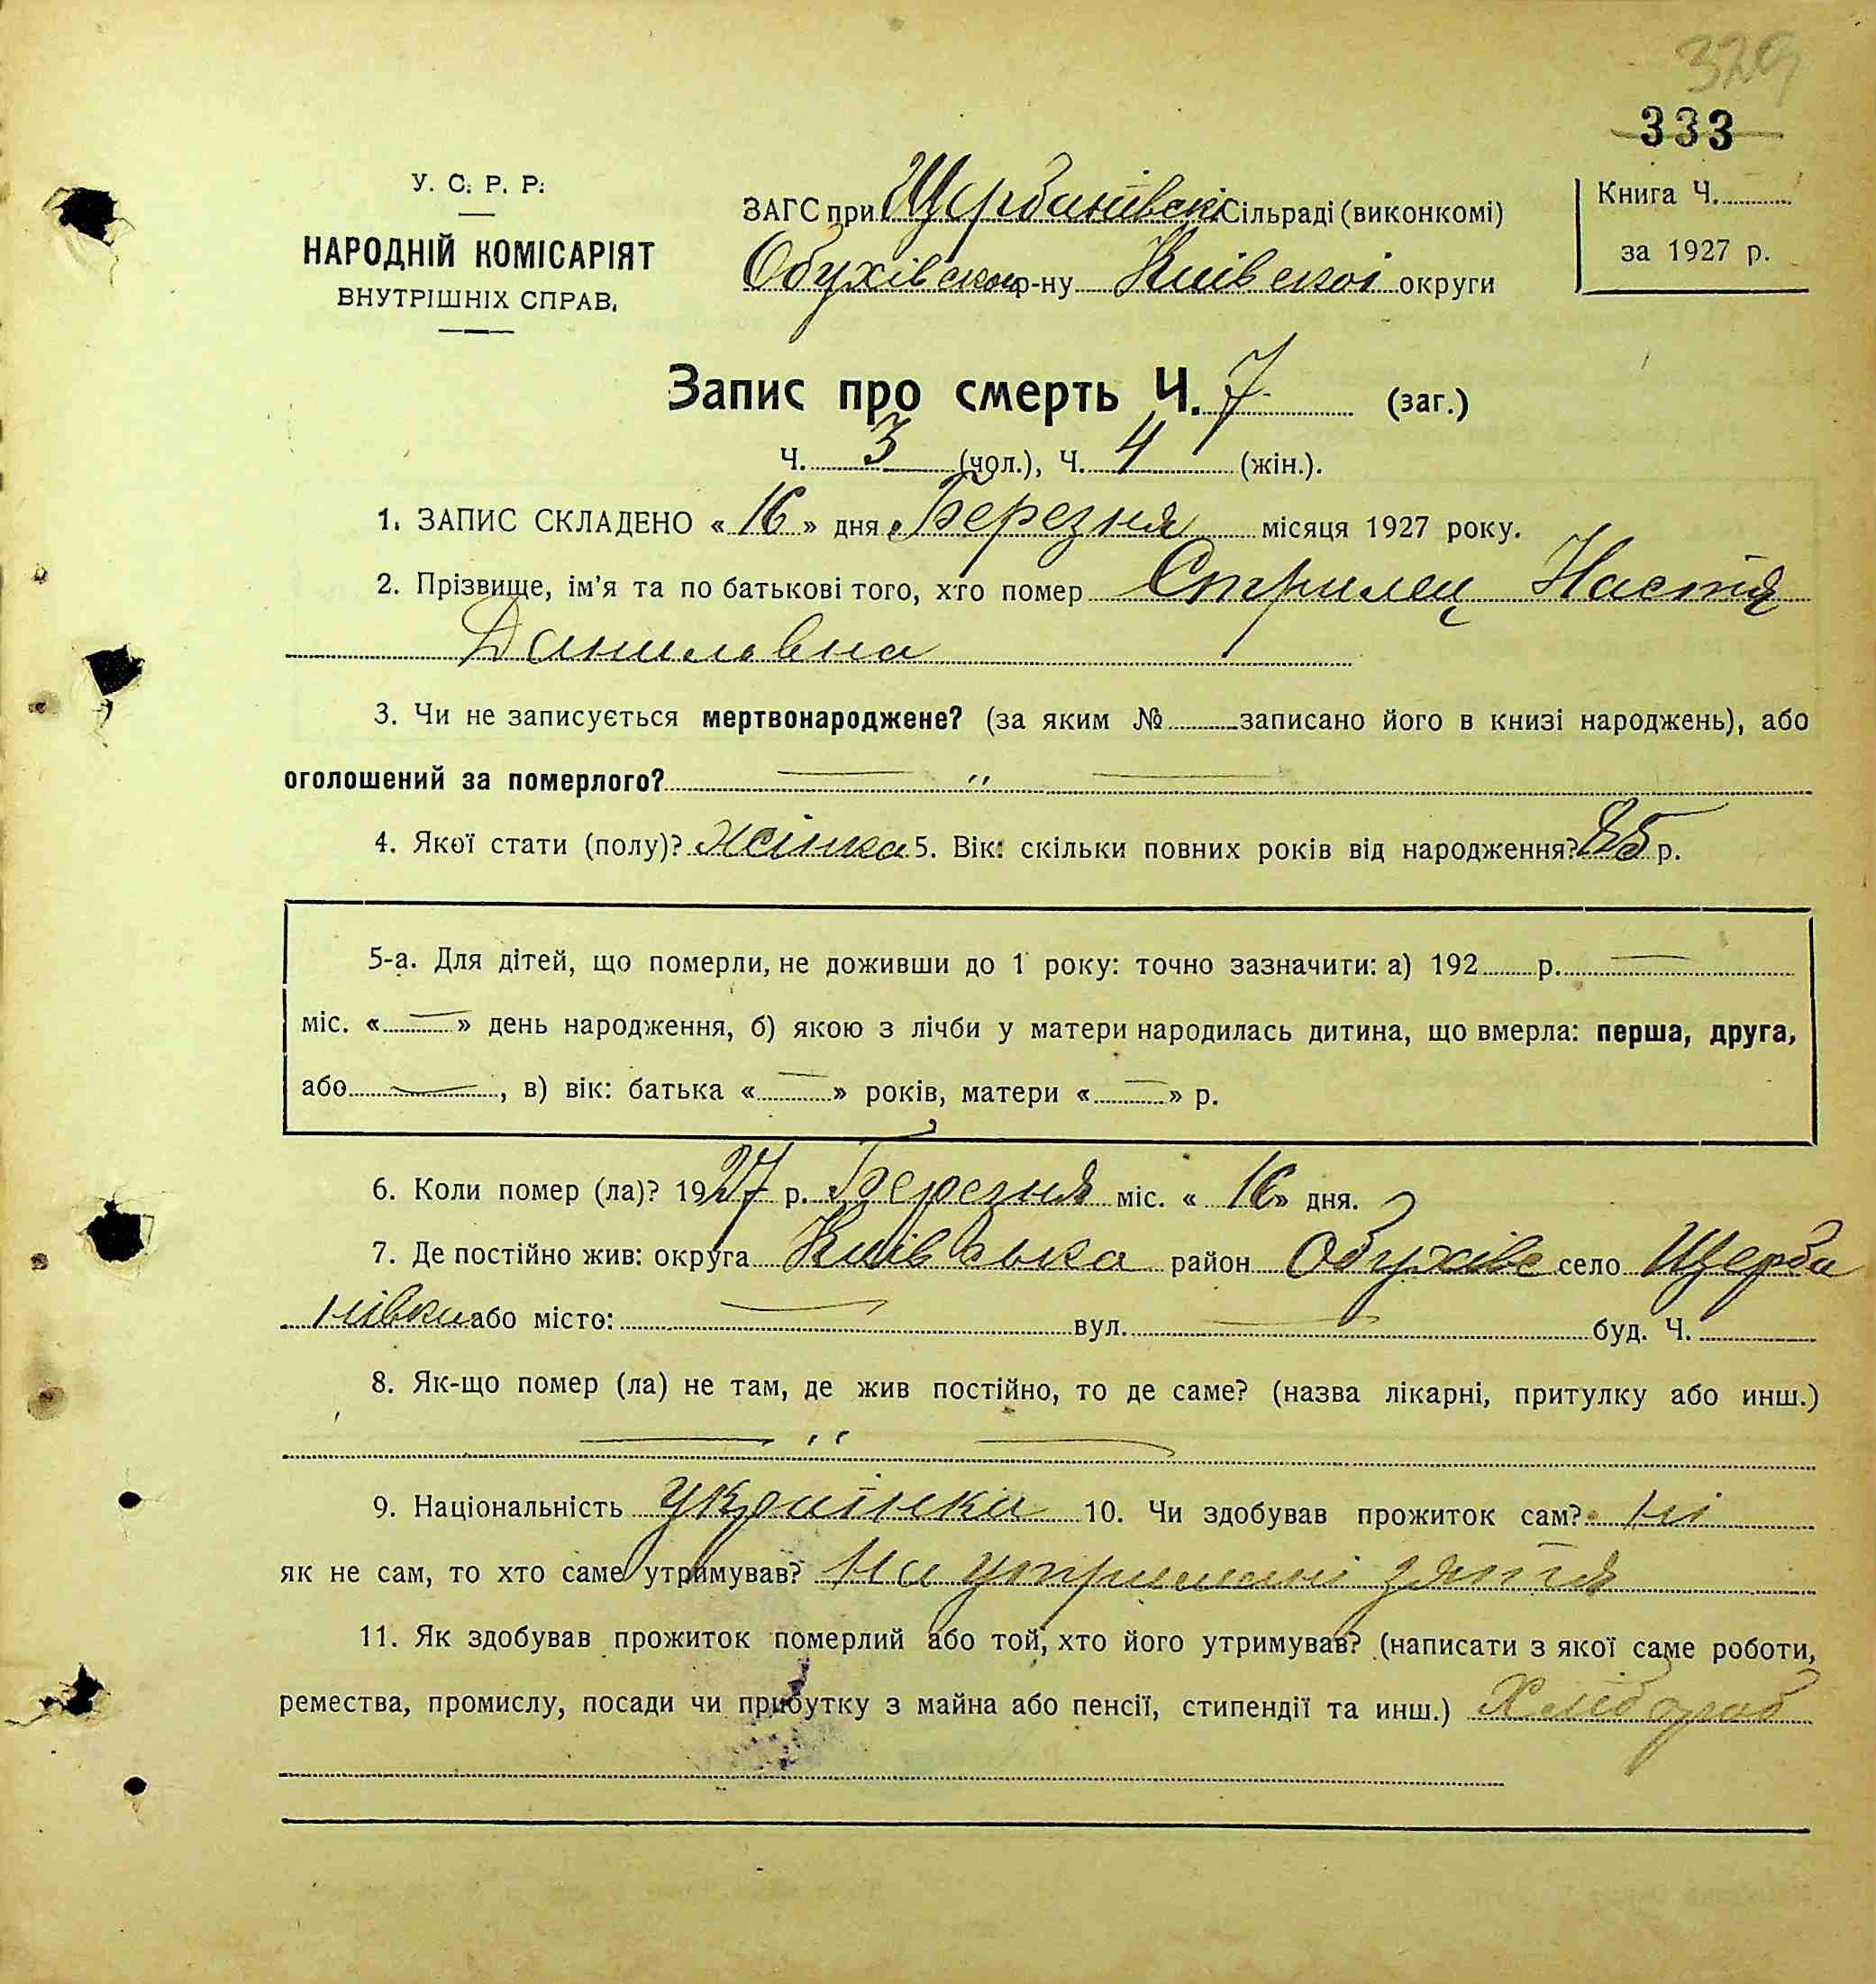 329
333
У. С. Р. Р.
НАРОДНІЙ КОМІСАРІЯТ
ВНУТРІШНІХ СПРАВ.
ЗАГС при Щербанівскі Сільраді (виконкомі)
Обухівского р-ну Київскої округи
Книга Ч.
за 1927 р.
Запис про смерть Ч. 7 (заг.)
Ч. 3 (чол.), Ч. 4 (жін.).
1. ЗАПИС СКЛАДЕНО « 16 » дня Березня місяця 1927 року.
2. Прізвище, ім'я та по батькові того, хто помер Стрилец Настя
Даниловна
3. Чи не записується мертвонароджене? (за яким № записано його в книзі народжень), або
оголошений за померлого? — „ —
4. Якої стати (полу)? жінка 5. Вік: скільки повних років від народження? 85 р.
5-а. Для дітей, що померли, не доживши до 1 року: точно зазначити: а) 192 р. —
міс. « — » день народження, б) якою з лічби у матери народилась дитина, що вмерла: перша, друга,
або —, в) вік: батька « — » років, матери « — » р.
6. Коли помер (ла)? 1927 р. Березня міс. « 16 » дня.
7. Де постійно жив: округа Київська район Обухівс село Щерба
нівки або місто: — вул. — буд. Ч.
8. Як-що помер (ла) не там, де жив постійно, то де саме? (назва лікарні, притулку або инш.)
— „ —
9. Національність українка 10. Чи здобував прожиток сам? ні
як не сам, то хто саме утримував? На утримані зятя
11. Як здобував прожиток померлий або той, хто його утримував? (написати з якої саме роботи,
ремества, промислу, посади чи прибутку з майна або пенсії, стипендії та инш.) Хлібороб